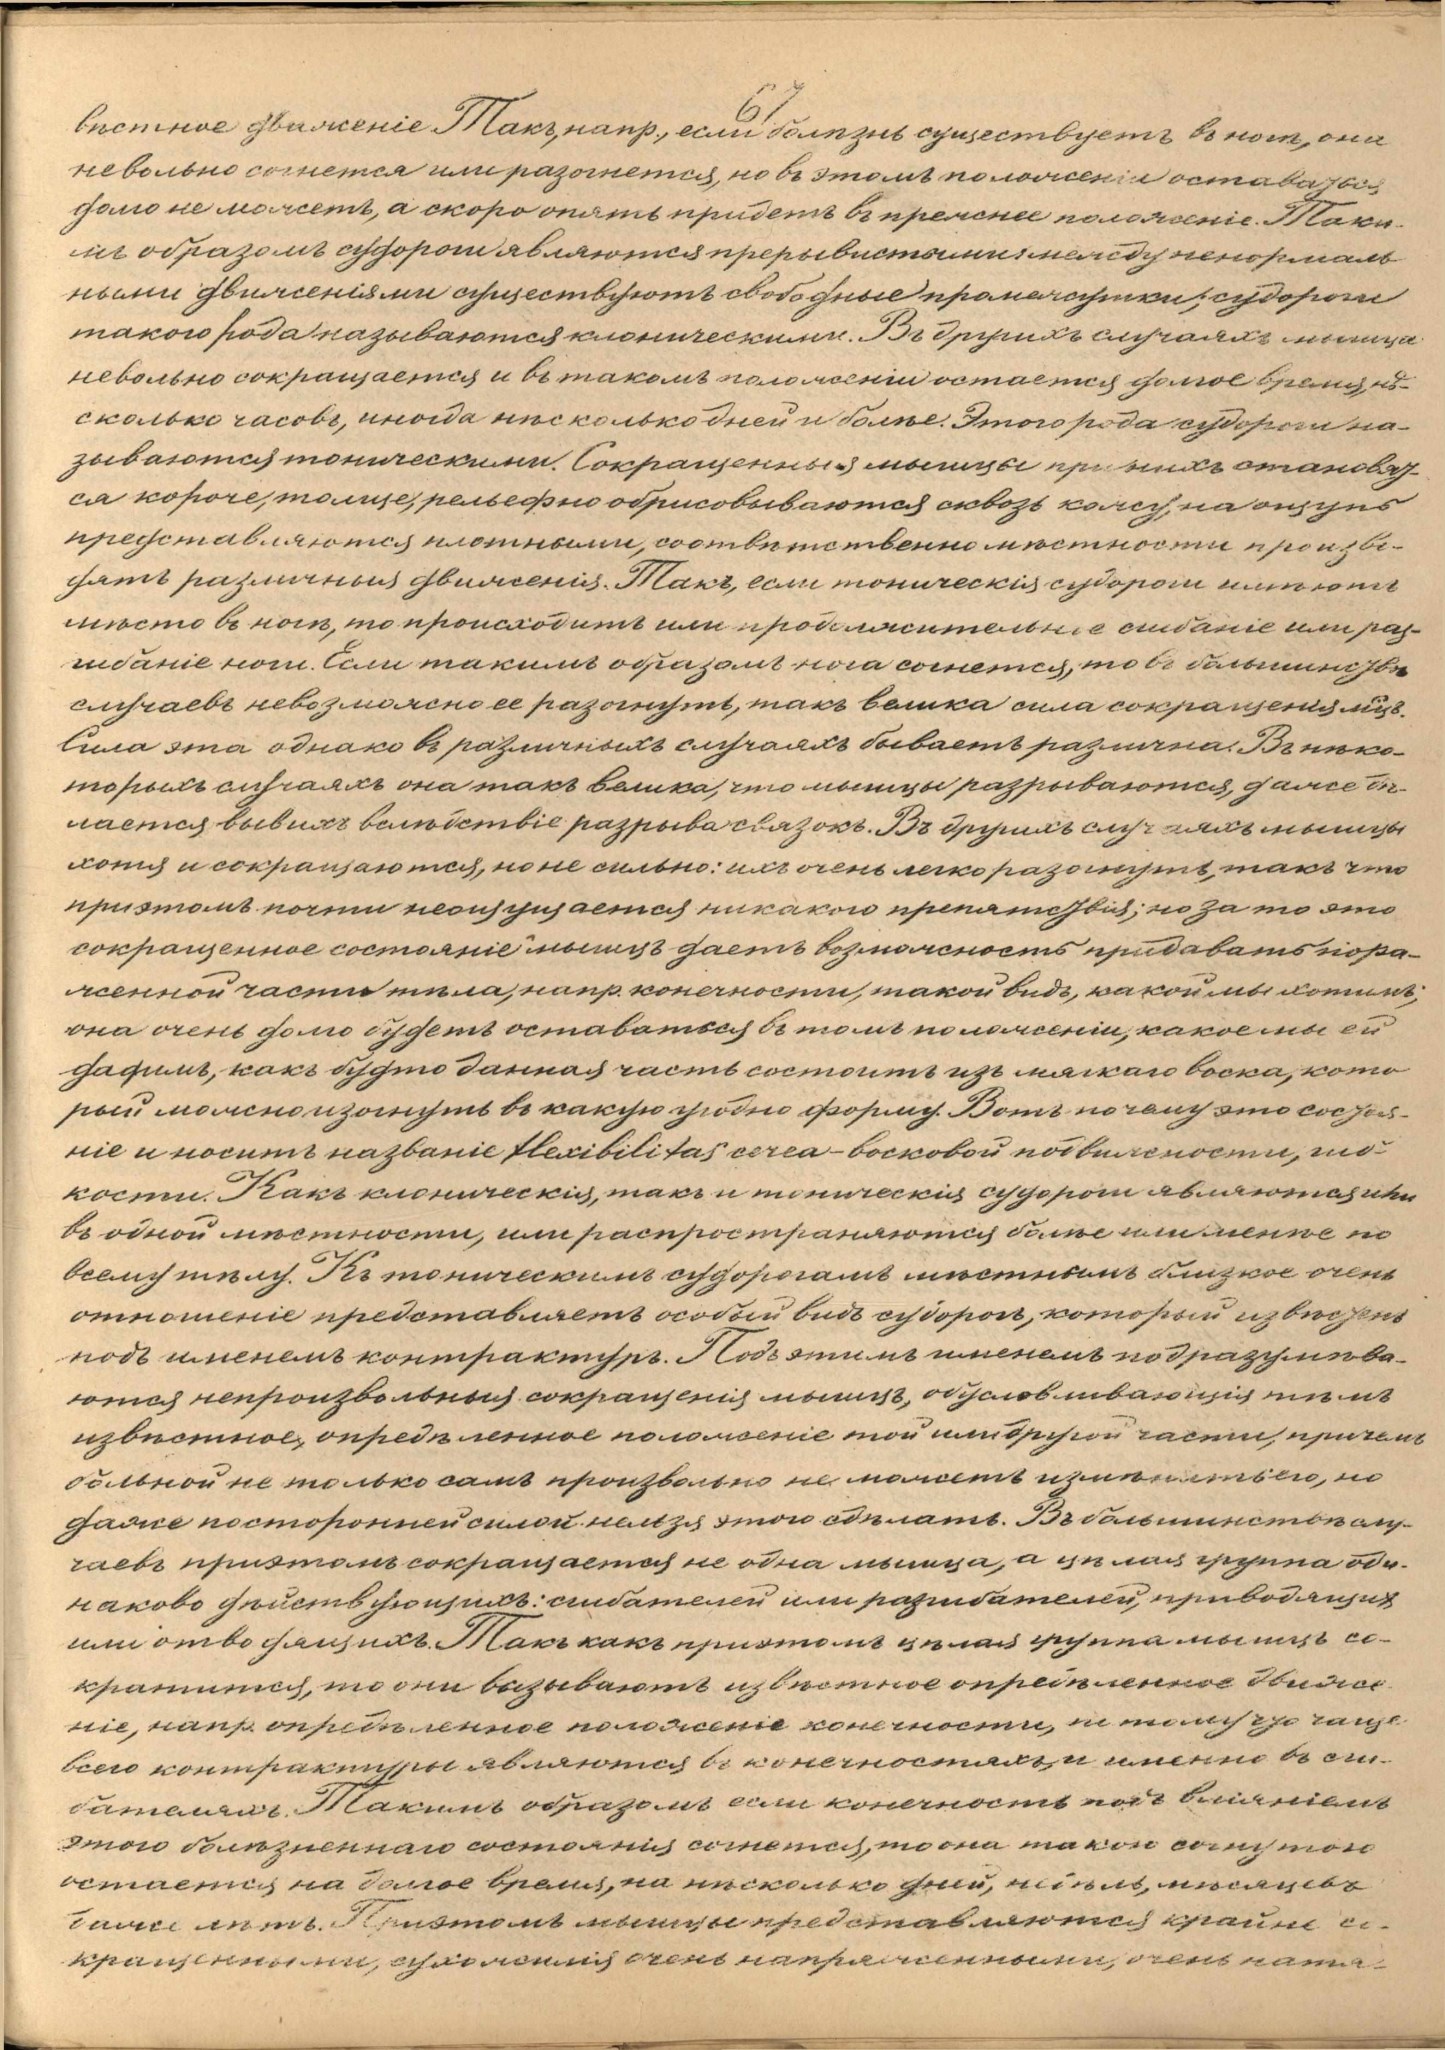 67
вѣстное движеніе. Такъ, напр., если болѣзнь существуетъ въ ногѣ, она
невольно согнется или разогнется, но въ этомъ положеніи оставаться
долго не можетъ, а скоро опять придетъ въ прежнее положеніе. Таки-
мъ образомъ судороги являются прерывистыми: между ненормаль
ными движеніями существуютъ свободные промежутки; судороги
такого рода называются клоническими. Въ другихъ случаяхъ мышца
невольно сокращается и въ такомъ положеніи остается долгое время, нѣ-
сколько часовъ, иногда нѣсколько дней и болѣе. Этого рода судороги на-
зываются тоническими. Сокращенныя мышцы при нихъ становят-
ся короче, толще, рельефно обрисовываются сквозь кожу, на ощупь
представляются плотными, соотвѣтственно мѣстности произво-
дятъ различныя движенія. Такъ, если тоническія судороги имѣютъ
мѣсто въ ногѣ, то происходитъ или продолжительное сгибаніе или раз-
гибаніе ноги. Если такимъ образомъ нога согнется, то въ большинствѣ
случаевъ невозможно ее разогнуть, такъ велика сила сокращенія мцъ.
Сила эта однако въ различныхъ случаяхъ бываетъ различна. Въ нѣко-
торыхъ случаяхъ она такъ велика, что мышцы разрываются, даже дѣ-
лается вывихъ вслѣдствіе разрыва связокъ. Въ другихъ случаяхъ мышцы
хотя и сокращаются, но не сильно: ихъ очень легко разогнуть, такъ что
приэтомъ почти неощущается никакого препятствія; но за то это
сокращенное состояніе мышцъ даетъ возможность придавать пора-
женной части тѣла, напр. конечности, такой видъ, какой мы хотимъ;
она очень долго будетъ оставаться въ томъ положеніи, какое мы ей
дадимъ, какъ будто данная часть состоитъ изъ мягкаго воска, кото
рый можно изогнуть въ какую угодно форму. Вотъ почему это состоя-
ніе и носитъ названіе flexibilitas cerea – восковой подвижности, гиб-
кости. Какъ клоническія, такъ и тоническія судороги являются или
въ одной мѣстности, или распространяются болѣе или менѣе по
всему тѣлу. Къ тоническимъ судорогамъ мѣстнымъ близкое очень
отношеніе представляетъ особый видъ судорогъ, который извѣстенъ
подъ именемъ контрактуръ. Подъ этимъ именемъ подразумѣва-
ются непроизвольныя сокращенія мышцъ, обусловливающія тѣмъ
извѣстное, опредѣленное положеніе той или другой части, причемъ
больной не только самъ произвольно не можетъ измѣнить его, но
даже посторонней силой нельзя этого сдѣлать. Въ большинствѣ слу-
чаевъ приэтомъ сокращается не одна мышца, а цѣлая группа оди-
наково дѣйствующихъ: сгибателей или разгибателей, приводящихъ
или отводящихъ. Такъ какъ приэтомъ цѣлая группа мышцъ со-
кратится, то они вызываютъ извѣстное опредѣленное движе
ніе, напр. опредѣленное положеніе конечности, потому что чаще
всего контрактуры являются въ конечностяхъ, и именно въ сги-
бателяхъ. Такимъ образомъ если конечность подъ вліяніемъ
этого болѣзненнаго состоянія согнется, то она такою согнутою
остается на долгое время, на нѣсколько дней, недѣль, мѣсяцевъ
даже лѣтъ. Приэтомъ мышцы представляются крайне со-
кращенными, сухожилія очень напряженными, очень натя-